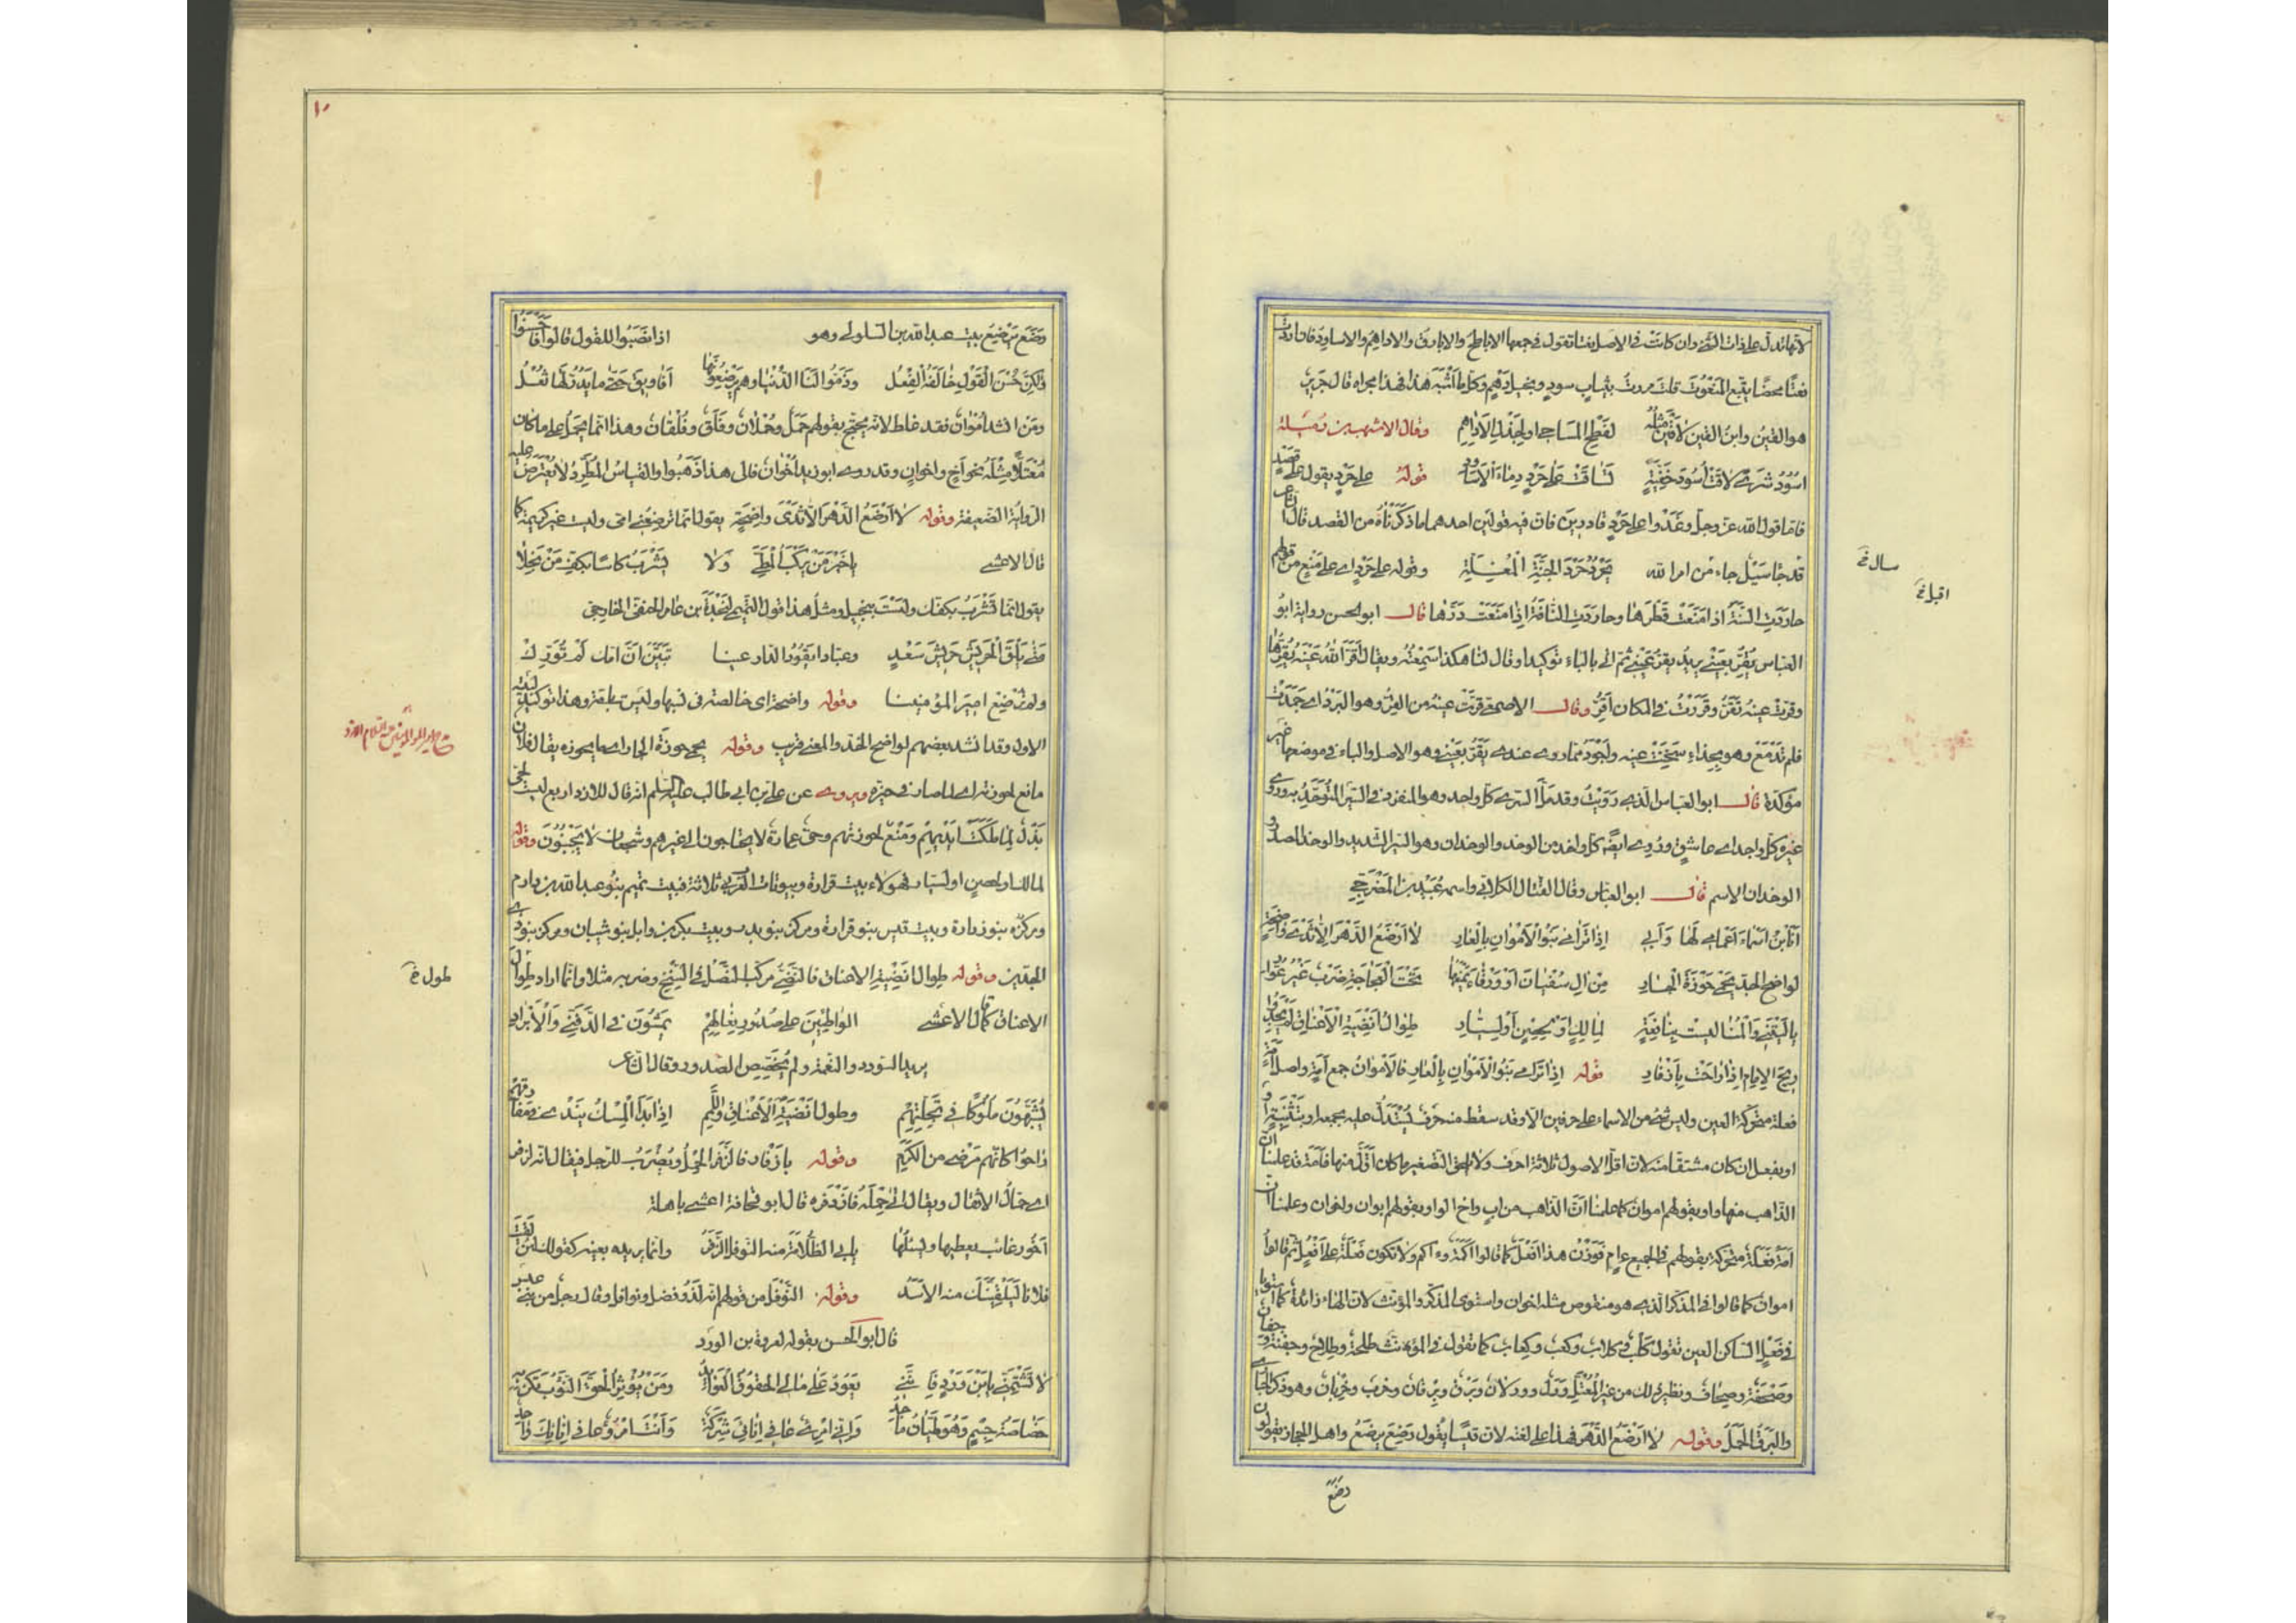 لانها تدل على ذات الشئ وان كانت فى الاصل نعتا تقول فى جمعها الاباطح والابارق والاداهم والاساود فان اردت
نعتا محضا يتبع المنعوت قلت مررت بثياب سود وبخيل دهم وكل ما اشبه هذا فهذا مجراه قال جرير
هو القين وابن القين لا قين مثله لفطح المساحى او لجدل الاداهم وقال الاشهب بن رميلة
اسود شرى لاقت اسود خفية تساقت على حرد دماء الاساود قوله على حرد يقول على قصد
فاما قول الله عز وجل وغدوا على حرد قادرين فان فيه قولين احدهما ما ذكرناه من القصد قال الشاعر
قد جا سيل جاء من امر الله يحرد حرد الجنة المغلة وقوله على حرد اى على منع من قولهم
حاردت السنة اذا منعت قطرها وحاردت الناقة اذا منعت درها قال ابو الحسن رواية ابو
العباس يقر بعينى يريد يقر عينى ثم اتى بالباء توكيدا وقال لنا هكذا سمعته ويقال اقر الله عينه يقرها
وقرت عينه تقر وقررت فى المكان اقر وقال الاصمعى قرت عينه من القر وهو البرد اى جمدت
فلم تدمع وهو بحذاء سخنت عينه واجود مما روى عندى يقر بعينى وهو الاصل والباء فى موضعها غير
مؤكدة قال ابو العباس الذى رويت وقد مرا السرى كل واحد وهو المنفرد فى السير المتوحد به وروى
غيره كل واجد اى عاشق وروى ايضا كل واخد من الوخد والوخدان وهو السير الشديد والوخد المصدر و
الوخدان الاسم قال ابو العباس وقال القتال الكلابى واسمه عبيد بن المضرجى
انا ابن اسماء اعمامى لها وابى اذا ترامى بنو الاموان بالعار لا ارضع الدهر الا ثدى واضحة
لواضح الخد يحمى حوزة الجار من ال سفيان او ورقاء يمنعها تحت العجاجة ضرب غير عوار
يا ليتنى والمنا ليست بنافعة لمالك او لحصن او لسيار طوال انضية الاعناق لم يجدوا
ريح الاماء اذا راحت بازفار قوله اذا ترامى بنو الاموان بالعار فالاموان جمع امة واصل امة
فعلة متحركة العين وليس شئ من الاسماء على حرفين الا وقد سقط منه حرف يستدل عليه بجمعه او بتثنيته او
او بفعل ان كان مشتقا منه لان اقل الاصول ثلاثة احرف ولا يلحق التصغير ما كان اقل منها فامة قد علمنا ان
الذاهب منها واو بقولهم اموان كما علمنا ان الذاهب من اب واخ الواو بقولهم ابوان واخوان وعلمنا ان
امة فعلة متحركة بقولهم فى الجميع ءام فوزن هذا افعل كما قالوا اكمة وءاكم ولا تكون فعلة على افعل ثم قالوا
اموان كما قالوا فى المذكر الذى هو منقوص مثله اخوان واستوى المذكر والمؤنث لان الهاء زائدة كما استويا
فى فعل الساكن العين تقول كلب وكلاب وكعب وكعاب كما تقول فى المؤنث طلحة وطلاح وجفنة وجفان و
وصحفة وصحاف ونظير ذلك من غير المعتل ورل وورلان وبرق وبرقان وخرب وخربان وهو ذكر الحبارى
والبرق الحمل وقوله لا ارضع الدهر فهذا على لغته لان قيسا يقول رضع يرضع واهل الحجاز يقولون
رضع
سال خ
اقبل خ
١٠
رضع يرضع بيت عبد الله بن السلولى وهو اذا نصبوا للقول قالوا فاحسنوا
ولكن حسن القول خالفه الفعل وذموا لنا الدنيا وهم يرضعونها افاويق حتى ما يدر لها ثعل
ومن انشد اموان فقد غلط لانه يحتج بقولهم حمل وحملان وفلق وفلقان وهذا انما يحمل على ما كان
معتلا مثله نحو اخ واخوان وقد روى ابو زيد اخوان فالى هذا ذهبوا والقياس المطرد لا تعترض عليه
الرواية الضعيفة وقوله لا ارضع الدهر الا ثدى واضحة يقول انما ترضعنى امى وليست غير كريمة كما
قال الاعشى يا خير من يركب المطى ولا يشرب كاسا بكف من بخلا
يقول انما تشرب بكفك ولست ببخيل ومثل هذا قول التميمى لنجدة بن عامر الحنفى الخارجى
متى تلق الحريش حريش سعد وعبادا يقود الدارعينا تبين ان امك لم تورك
ولم ترضع امير المؤمنينا وقوله واضحة اى خالصة فى نسبها وليست بامة وهذا توكيد لبيته
الاول وقد انشد بعضهم لواضح الخد والمعنى قريب وقوله يحمى حوزة الجار اى ما يحوزه يقال فلان
مانع لحوزته اى لما صار فى حيزه ويروى عن على بن ابى طالب عليه السلم انه قال للازد اربع ليست لحى
بذل لما ملكت ايديهم ومنع لحوزتهم وحى عمارة لا يحتاجون الى غيرهم وشجعان لا يجبنون وقوله
لمالك او لحصن او لسيار فهؤلاء بيت فزارة وبيوتات العرب ثلاثة فبيت تميم بنو عبد الله بن دارم
ومركزه بنو زرارة وبيت قيس بنو فزارة ومركزه بنو بدر وبيت بكر بن وائل بنو شيبان ومركزه بنو ذى
الجدين وقوله طوال انضية الاعناق فالنضى مركب النصل فى السنخ وضربه مثلا وانما اراد طوال
الاعناق كما قال الاعشى الواطئين على صدور نعالهم يمشون فى الدفنى والابراد
يريد السودد والنعمة ولم يخصص الصدور وقال الشاعر
يشبهون ملوكا فى تجلتهم وطول انضية الاعناق واللمم اذا بدا المسك يندى فى مفارقهم
راحوا كانهم مرضى من الكرم وقوله بازفار فالزفر الحمل ويضرب للرجل فيقال انه لزفر
اى حمال الاثقال ويقال اتى حمله فازدفره قال ابو قحافة اعشى باهلة
اخو رغائب يعطيها ويسئلها يابى الظلامة منه النوفل الزفر وانما يريده بعينه كقولك لئن لقيت
فلانا ليلقينك منه الاسد وقوله النوفل من قولهم انه لذو فضل ونوافل وقال رجل من بنى عبس
قال ابو الحسن يقوله لعروة بن الورد
لا تشتمنى يا ابن ورد فاننى تعود على مالى الحقوق العوائد ومن يؤثر الحق النؤوب تكن به
خصاصة جسم وهو طيان ماجد وانى امرئ عافى انائى شركة وانت امرؤ عافى انائك واحد
طول خ